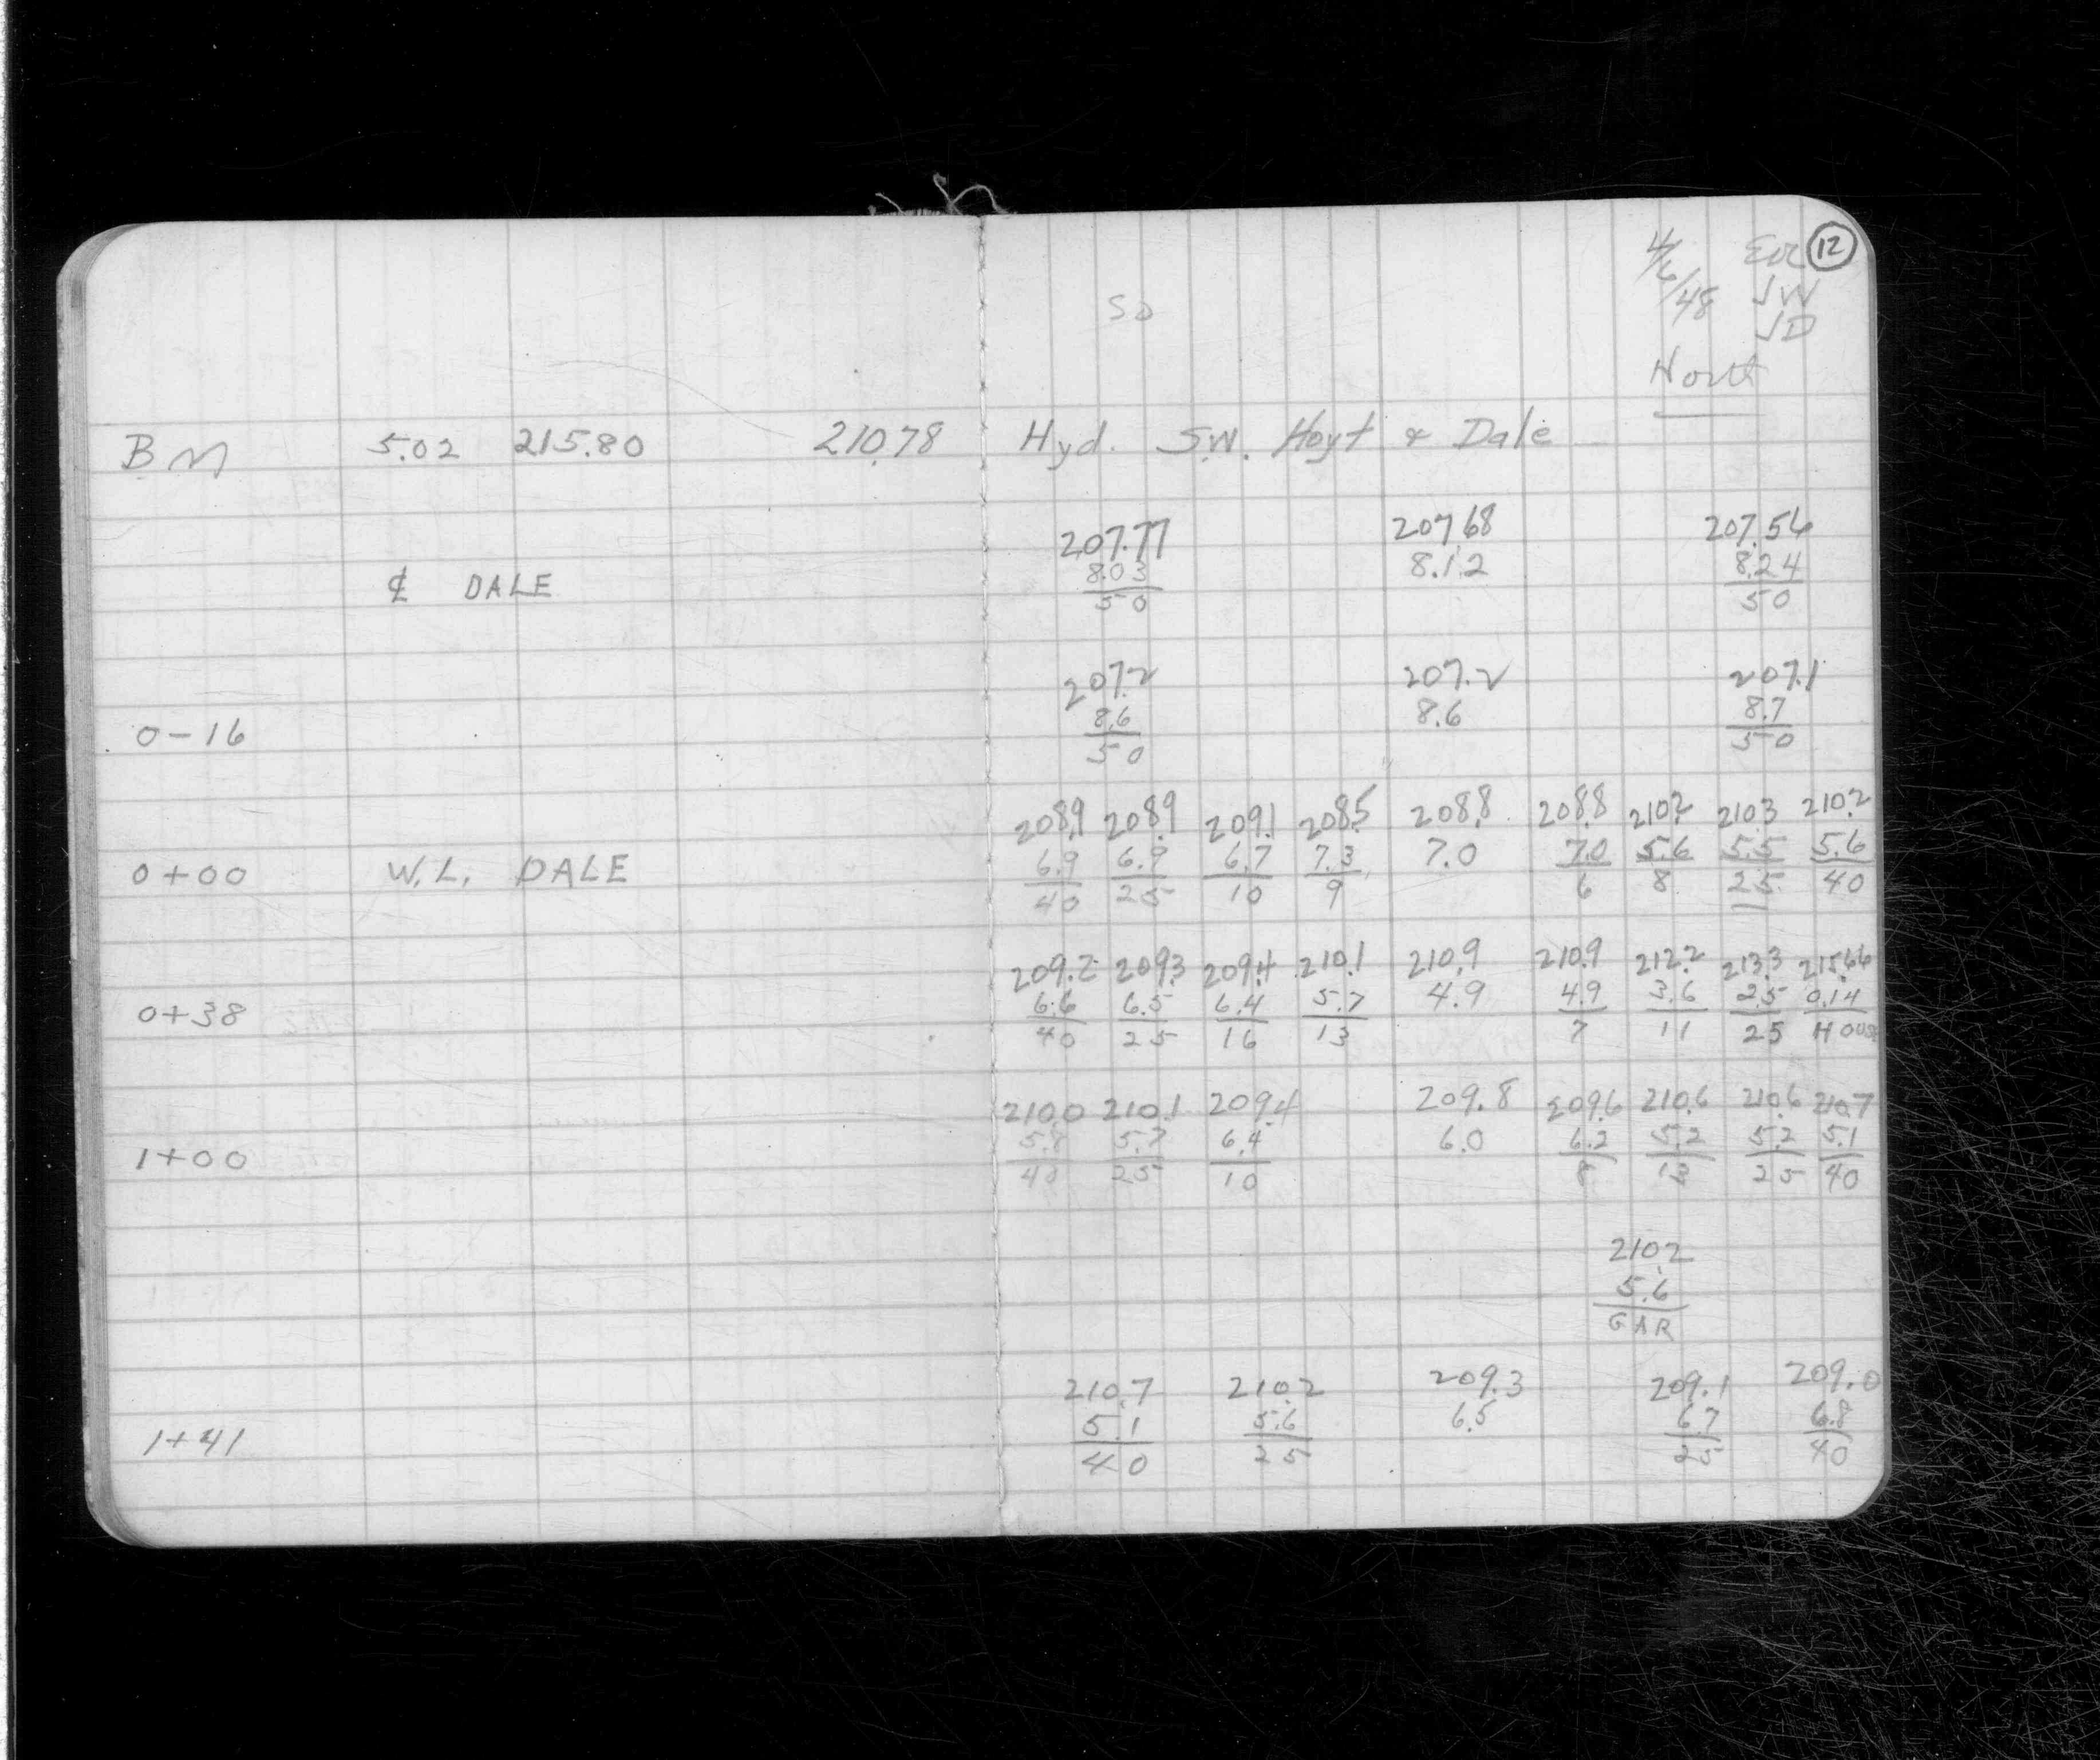 4/6/48 EVR 12
So JW
JD
North
BM 5.02 215.80 210.78 Hyd. S.W. Hoyt & Dale
207.77 207.68 207.56
8.03 8.12 8.24
₵ DALE
50 50
207.2 207.2 207.1
8.6 8.6 8.7
0-16
50 50
208.9 208.9 209.1 208.5 208.8 208.8 210.2 210.3 210.2
6.9 6.9 6.7 7.3 7.0 7.0 5.6 5.5 5.6
0+00 W.L. DALE
40 25 10 9 6 8 25 40
209.2 209.3 209.4 210.1 210.9 210.9 212.2 213.3 215.66
6.6 6.5 6.4 5.7 4.9 4.9 3.6 2.5 0.14
0+38
40 25 16 13 7 11 25 HOUSE
210.0 210.1 209.4 209.8 209.6 210.6 210.6 210.7
5.8 5.7 6.4 6.0 6.2 5.2 5.2 5.1
1+00
40 25 10 8 13 25 40
210.2
5.6
GAR
210.7 210.2 209.3 209.1 209.0
5.1 5.6 6.5 6.7 6.8
1+41
40 25 25 40